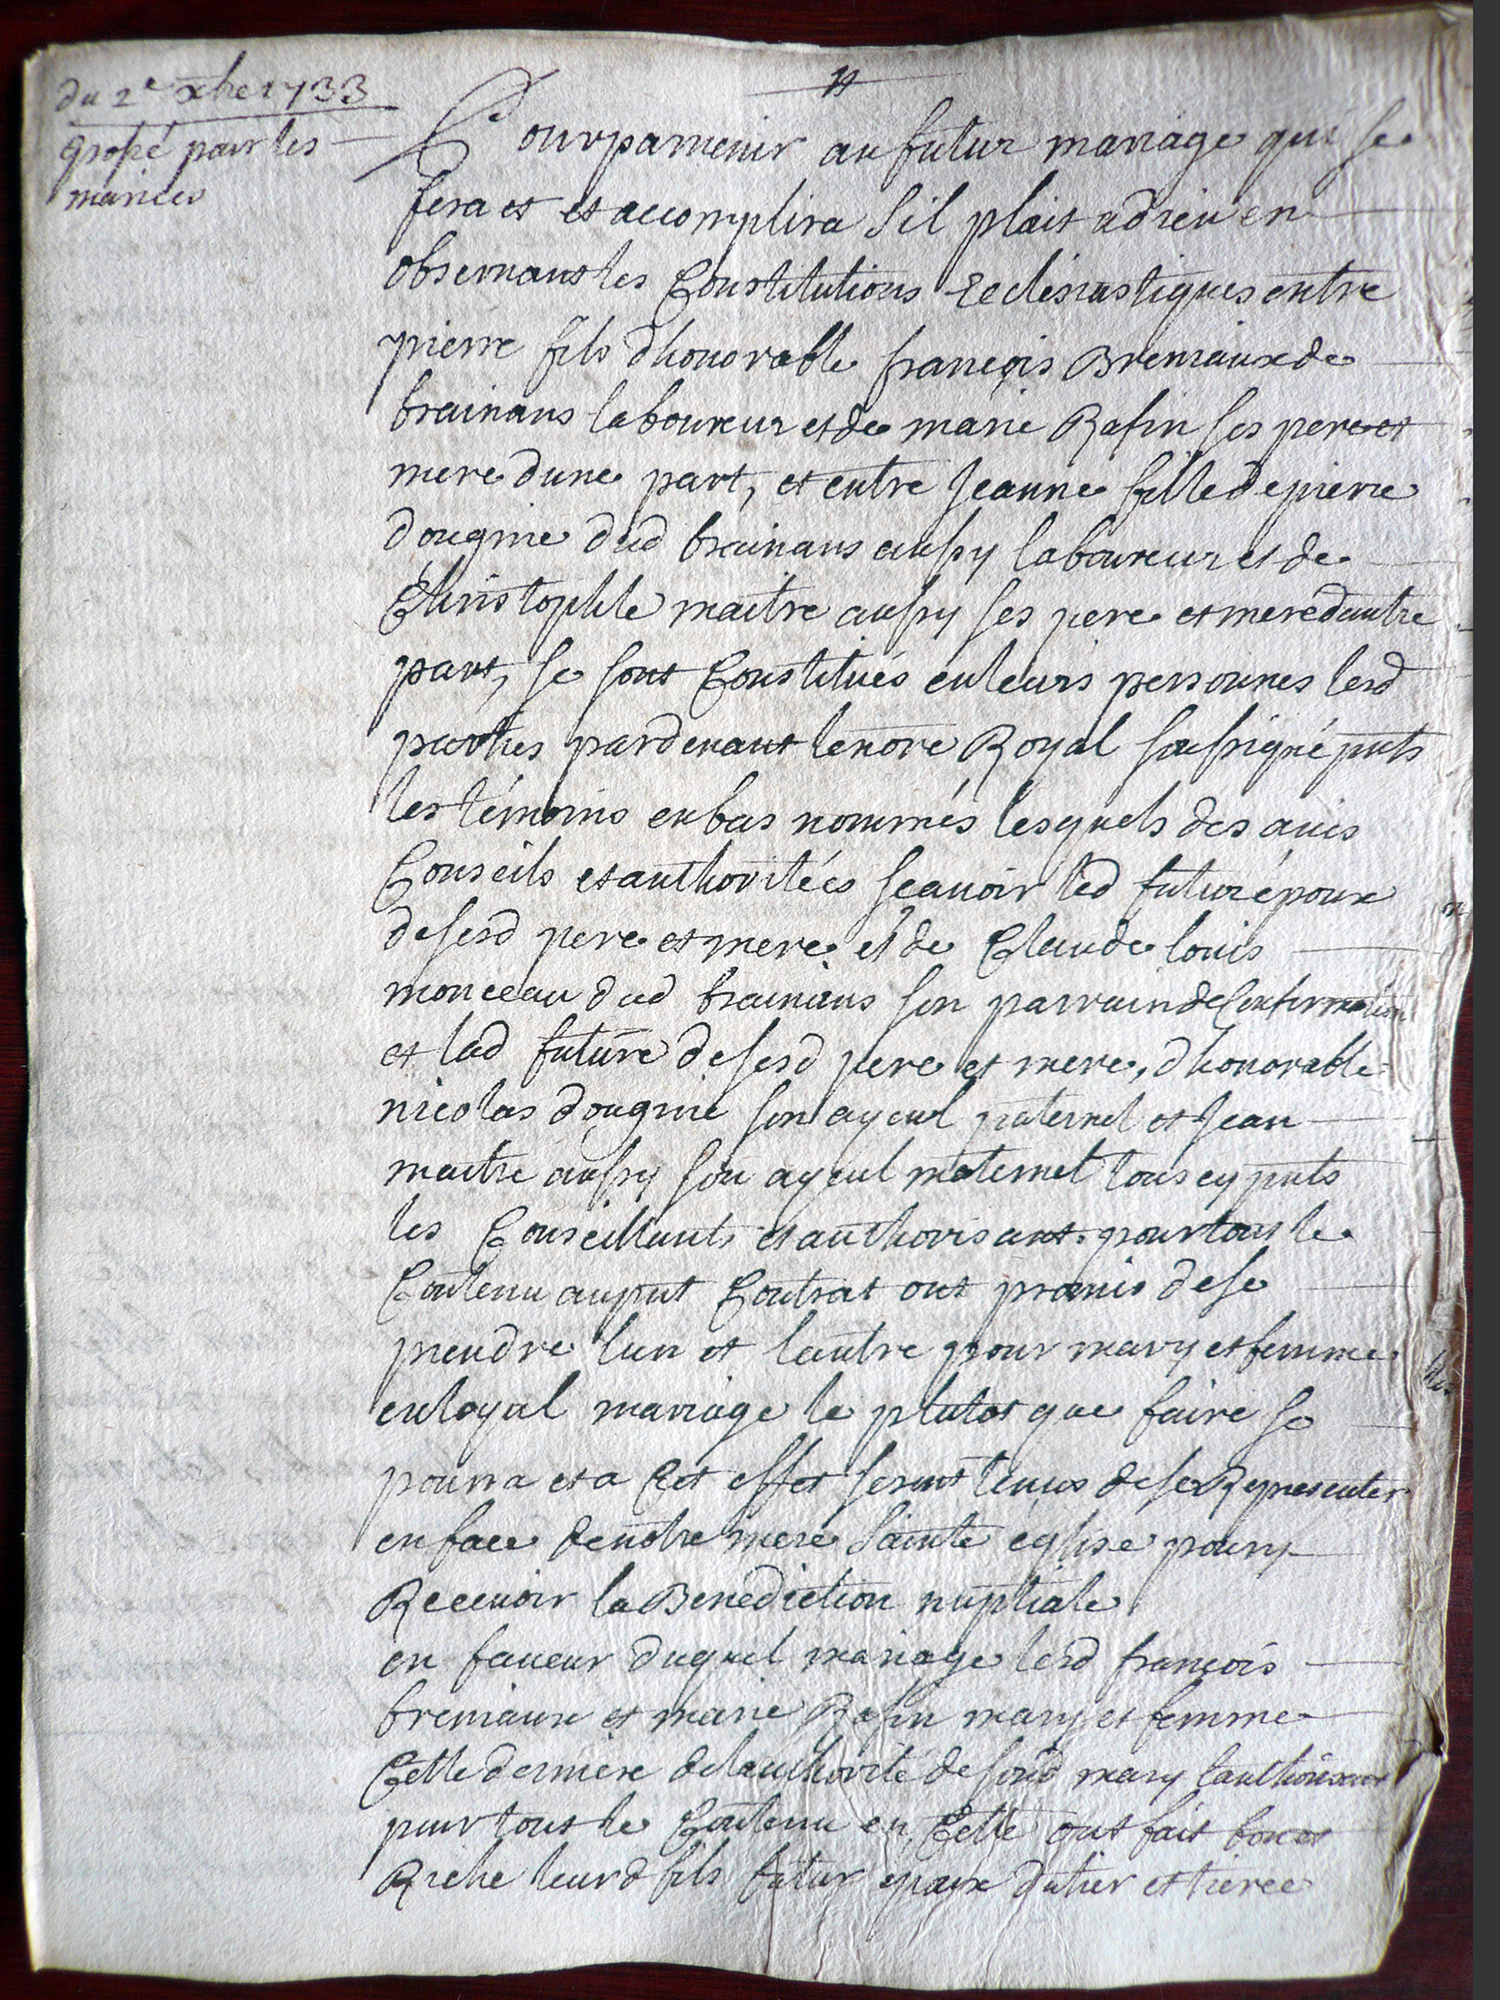 du 2e xbre 1733
grossé pour les
mariées
Pour parvenir au futur mariage qui se
fera et et accomplira s'il plait adieu en
observant les Constitutions Ecclésiastiques entre
pierre fils dhonorable françois Breniaux de
brainans laboureur et de marie Rafin ses pere et
mere dune part, et entre Jeanne fille de pierre
dougnie dud brainans aussy laboureur et de
Christophle maitre aussy ses pere et mere dautre
part, se sont Constitués en leurs personnes lesd
parties pardevant le nore Royal soussigné pnts
les témoins enbas nommés lesquels des avis
Conseils et authoritées scavoir led futur époux
de sesd pere et mere et de Claude louis
monceau dud brainans son parrain de Confirmation
et lad future de sesd pere et mere, dhonorable
nicolas dougnie son ayeul paternel et Jean
maitre aussy son ayeul maternel tous cy pnts
les Conseillants et authorisant pour tout le
Contenu au pnt Contrat ont promis de se
prendre lun et lautre pour mary et femme
en loyal mariage le plutot que faire se
pourra et a Cet effet seront tenus de se Representer
en face de notre mere Sainte église pour y
Recevoir la Benediction nuptiale
en faveur duquel mariage lesd françois
breniaux et marie Rafin mary et femme
Cette derniere de lauthorité de sond mary lauthorisant
pour tout le Contenu en Cette ont fait bon et
Riche leurd fils futur epoux dutier et tierce